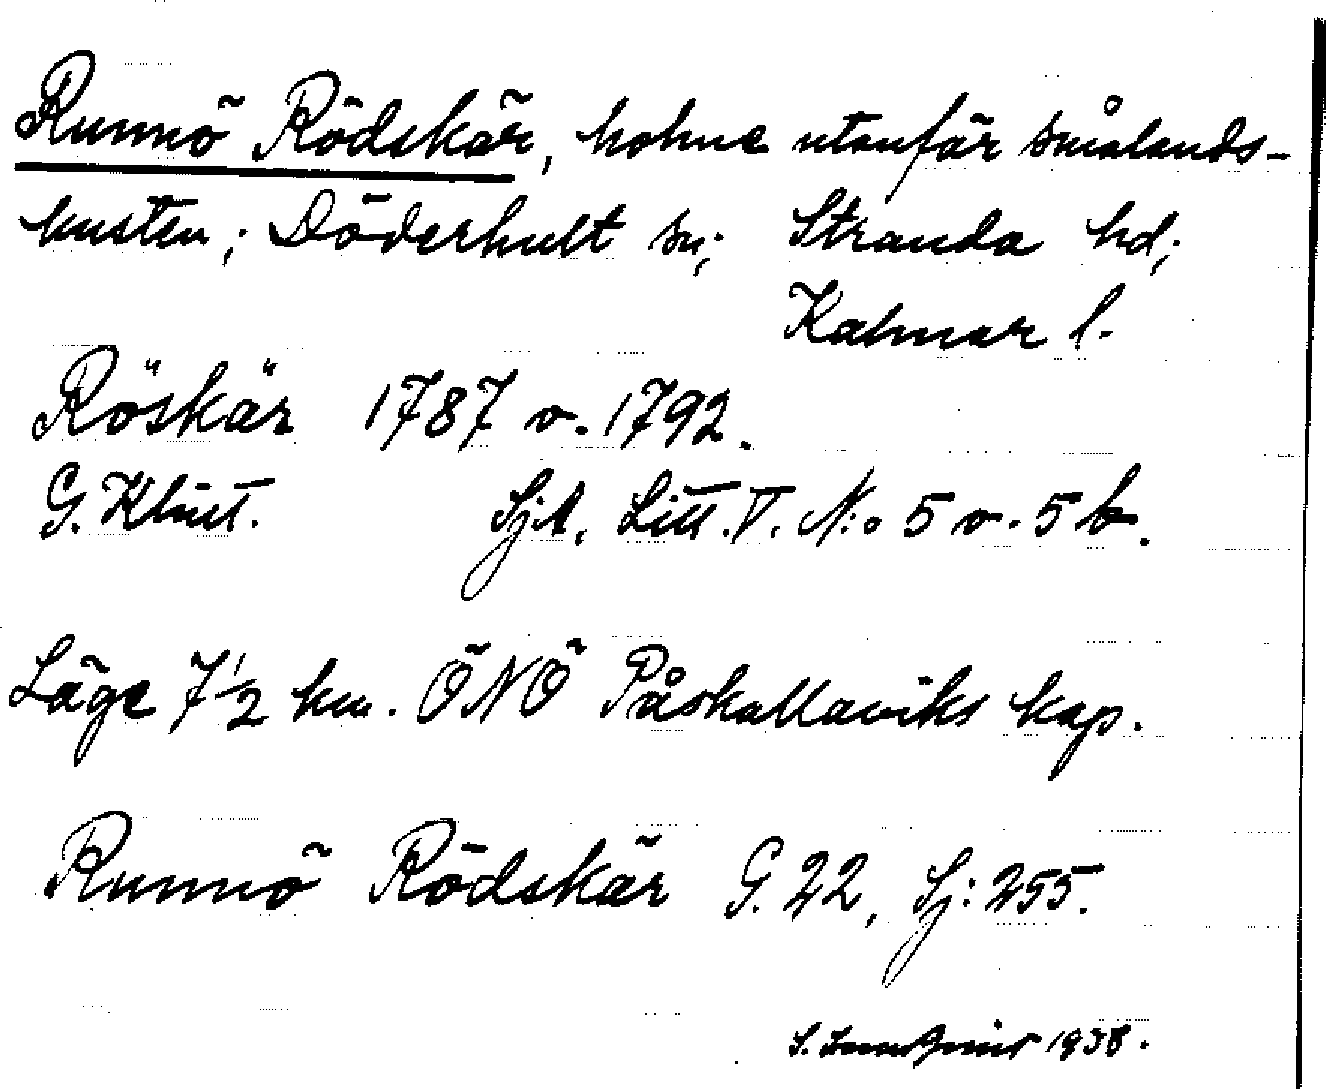 Runnö Rödskär, holme utanför Smålands-
kusten; Döderhult sn; Stranda hd;
Kalmar l.
Röskär 1787 o. 1792.
G. Klint. SjA. Litt. V. N:o 5 o. 5 b.
Läge 7 1/2 km. ÖNÖ Påskallaviks kap.
Runnö Rödskär G. 22, Sj: 255.
S. 1938.